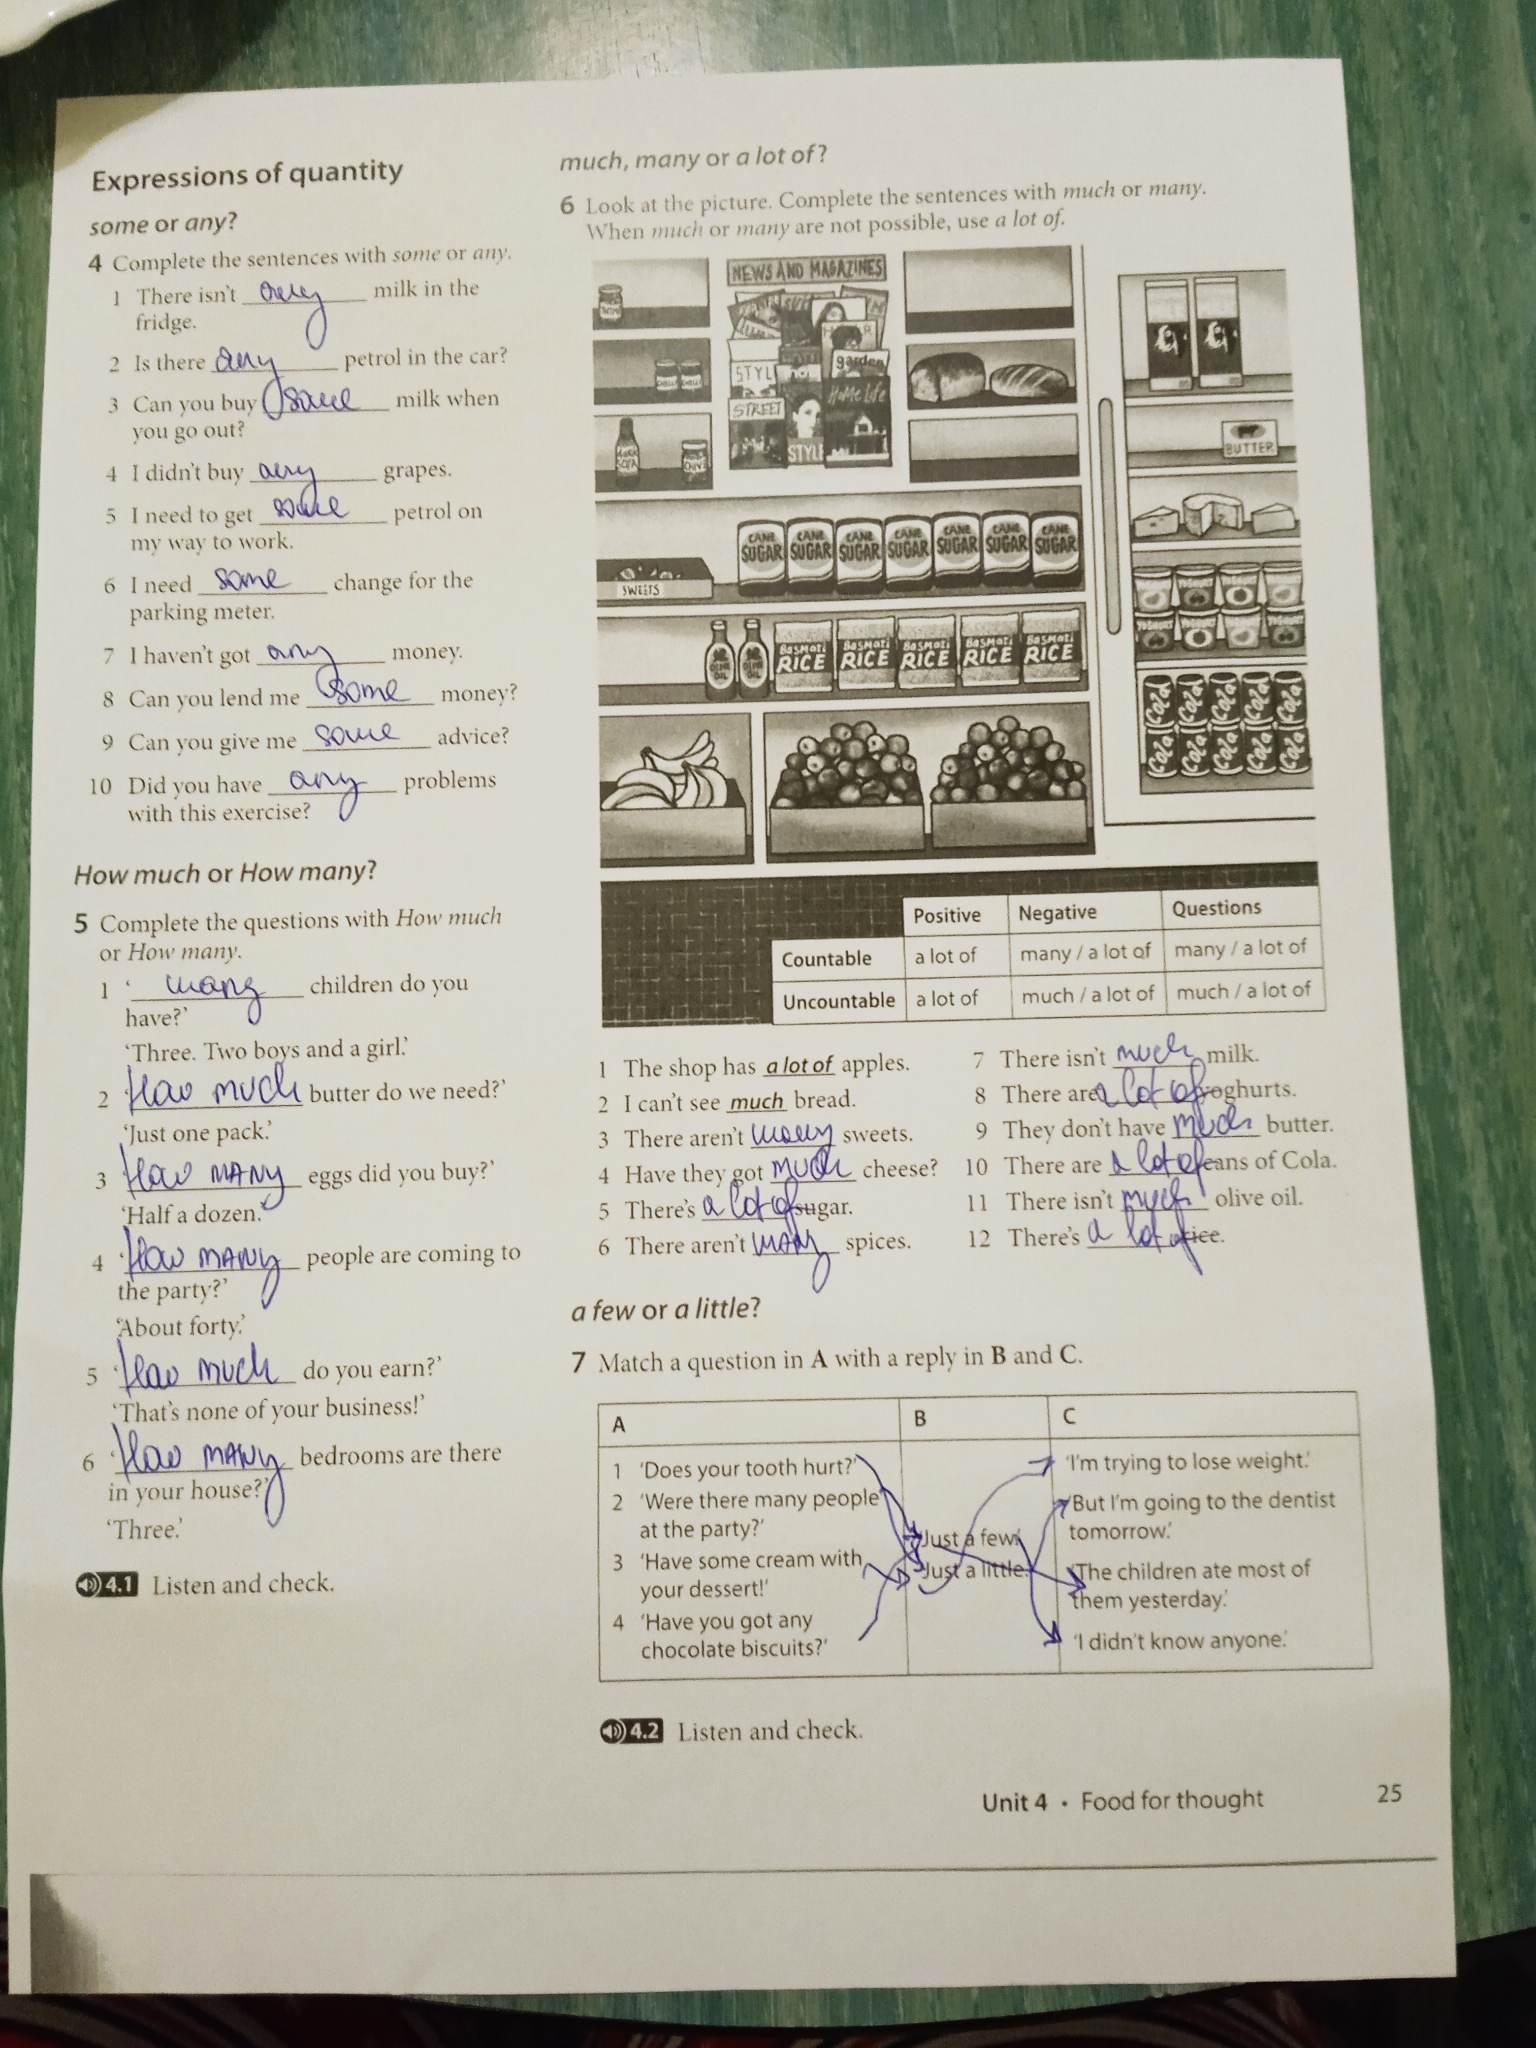 Expressions of quantity
some or any?
4 Complete the sentences with some or any.
1 There isn't any milk in the
fridge.
2 Is there any petrol in the car?
3 Can you buy some milk when
you go out?
4 I didn't buy any grapes.
5 I need to get some petrol on
my way to work.
6 I need some change for the
parking meter.
7 I haven't got any money.
8 Can you lend me some money?
9 Can you give me some advice?
10 Did you have any problems
with this exercise?
How much or How many?
5 Complete the questions with How much
or How many.
1 'many children do you
have?'
'Three. Two boys and a girl.'
2 'How much butter do we need?'
'Just one pack.'
3 'How MANY eggs did you buy?'
'Half a dozen.'
4 'How MANY people are coming to
the party?'
'About forty.'
5 'How much do you earn?'
'That's none of your business!'
6 'How MANY bedrooms are there
in your house?'
'Three.'
4.1 Listen and check.
much, many or a lot of?
6 Look at the picture. Complete the sentences with much or many.
When much or many are not possible, use a lot of.
NEWS AND MAGAZINES
STYL
garden
STREET
HOME LIFE
STYLE
BUTTER
CANE SUGAR CANE SUGAR CANE SUGAR CANE SUGAR CANE SUGAR CANE SUGAR CANE SUGAR
SWEETS
OLIVE OIL OLIVE OIL BASMATI RICE BASMATI RICE BASMATI RICE BASMATI RICE BASMATI RICE
Cola Cola Cola Cola Cola
Cola Cola Cola Cola Cola
Positive Negative Questions
Countable a lot of many / a lot of many / a lot of
Uncountable a lot of much / a lot of much / a lot of
1 The shop has a lot of apples.
2 I can't see much bread.
3 There aren't many sweets.
4 Have they got much cheese?
5 There's a lot of sugar.
6 There aren't many spices.
7 There isn't much milk.
8 There are a lot of yoghurts.
9 They don't have much butter.
10 There are a lot of cans of Cola.
11 There isn't much olive oil.
12 There's a lot of rice.
a few or a little?
7 Match a question in A with a reply in B and C.
A B C
1 'Does your tooth hurt?'
2 'Were there many people
at the party?'
3 'Have some cream with
your dessert!'
4 'Have you got any
chocolate biscuits?'
'Just a few.'
'Just a little.'
'I'm trying to lose weight.'
'But I'm going to the dentist
tomorrow.'
'The children ate most of
them yesterday.'
'I didn't know anyone.'
4.2 Listen and check.
Unit 4 • Food for thought 25